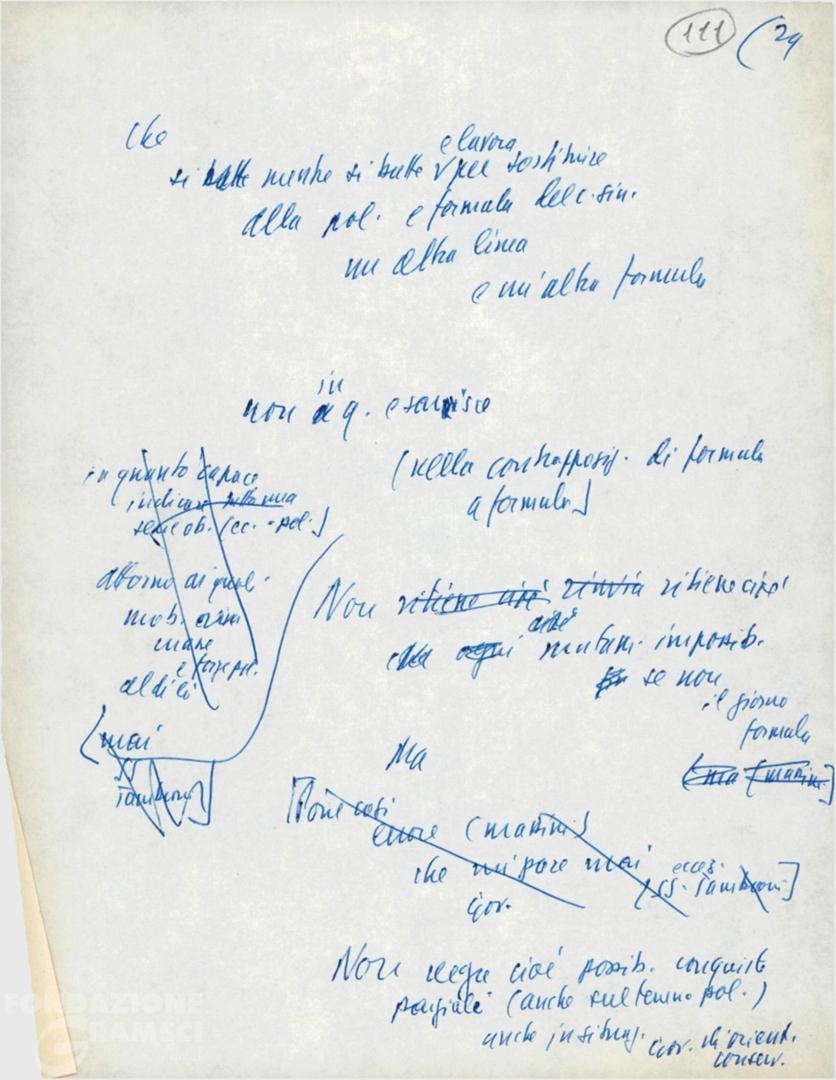 111 (24
Che
e lavora
si batte mentre si batte V per sostituire
alla pol. e formula del c. sin.
un altra linea
e un'altra formula
in
non q. esaurisce
(nella contrapposiz. di formula
a formula]
in quanto capace
indicare
ob. (ec. - pol.]
attorno ai quali
mob.
mane
e forze pol.
al di là
(mai
Tambroni]
Non ritiene cioè rinvia ritiene cioè
cioè
che ogni mutam. impossib.
se non
il giorno
formula
Ma
(ma (massim.]
[Pone così
errore (massim.)
che mi pare mai eccez.
[SS. Tambroni]
Gov.
Non nega cioè possib. conquiste
parziali (anche sul terreno pol.)
anche in situaz. Gov. di orient.
conserv.
FONDAZIONE
GRAMSCI